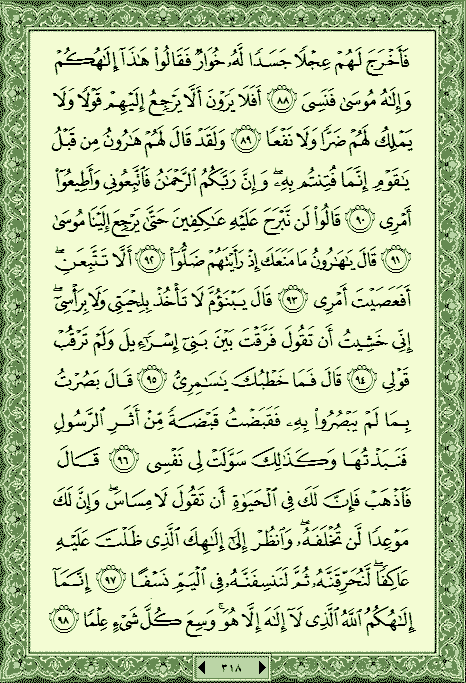 فَأَخْرَجَ لَهُمْ عِجْلًا جَسَدًا لَّهُۥ خُوَارٌ فَقَالُوا۟ هَـٰذَآ إِلَـٰهُكُمْ
وَإِلَـٰهُ مُوسَىٰ فَنَسِىَ ٨٨ أَفَلَا يَرَوْنَ أَلَّا يَرْجِعُ إِلَيْهِمْ قَوْلًا وَلَا
يَمْلِكُ لَهُمْ ضَرًّا وَلَا نَفْعًا ٨٩ وَلَقَدْ قَالَ لَهُمْ هَـٰرُونُ مِن قَبْلُ
يَـٰقَوْمِ إِنَّمَا فُتِنتُم بِهِۦ ۖ وَإِنَّ رَبَّكُمُ ٱلرَّحْمَـٰنُ فَٱتَّبِعُونِى وَأَطِيعُوٓا۟
أَمْرِى ٩٠ قَالُوا۟ لَن نَّبْرَحَ عَلَيْهِ عَـٰكِفِينَ حَتَّىٰ يَرْجِعَ إِلَيْنَا مُوسَىٰ
٩١ قَالَ يَـٰهَـٰرُونُ مَا مَنَعَكَ إِذْ رَأَيْتَهُمْ ضَلُّوٓا۟ ٩٢ أَلَّا تَتَّبِعَنِ ۖ
أَفَعَصَيْتَ أَمْرِى ٩٣ قَالَ يَبْنَؤُمَّ لَا تَأْخُذْ بِلِحْيَتِى وَلَا بِرَأْسِىٓ ۖ
إِنِّى خَشِيتُ أَن تَقُولَ فَرَّقْتَ بَيْنَ بَنِىٓ إِسْرَٰٓءِيلَ وَلَمْ تَرْقُبْ
قَوْلِى ٩٤ قَالَ فَمَا خَطْبُكَ يَـٰسَـٰمِرِىُّ ٩٥ قَالَ بَصُرْتُ
بِمَا لَمْ يَبْصُرُوا۟ بِهِۦ فَقَبَضْتُ قَبْضَةً مِّنْ أَثَرِ ٱلرَّسُولِ
فَنَبَذْتُهَا وَكَذَٰلِكَ سَوَّلَتْ لِى نَفْسِى ٩٦ قَالَ
فَٱذْهَبْ فَإِنَّ لَكَ فِى ٱلْحَيَوٰةِ أَن تَقُولَ لَا مِسَاسَ ۖ وَإِنَّ لَكَ
مَوْعِدًا لَّن تُخْلَفَهُۥ ۖ وَٱنظُرْ إِلَىٰٓ إِلَـٰهِكَ ٱلَّذِى ظَلْتَ عَلَيْهِ
عَاكِفًا ۖ لَّنُحَرِّقَنَّهُۥ ثُمَّ لَنَنسِفَنَّهُۥ فِى ٱلْيَمِّ نَسْفًا ٩٧ إِنَّمَآ
إِلَـٰهُكُمُ ٱللَّهُ ٱلَّذِى لَآ إِلَـٰهَ إِلَّا هُوَ ۚ وَسِعَ كُلَّ شَىْءٍ عِلْمًا ٩٨
٣١٨